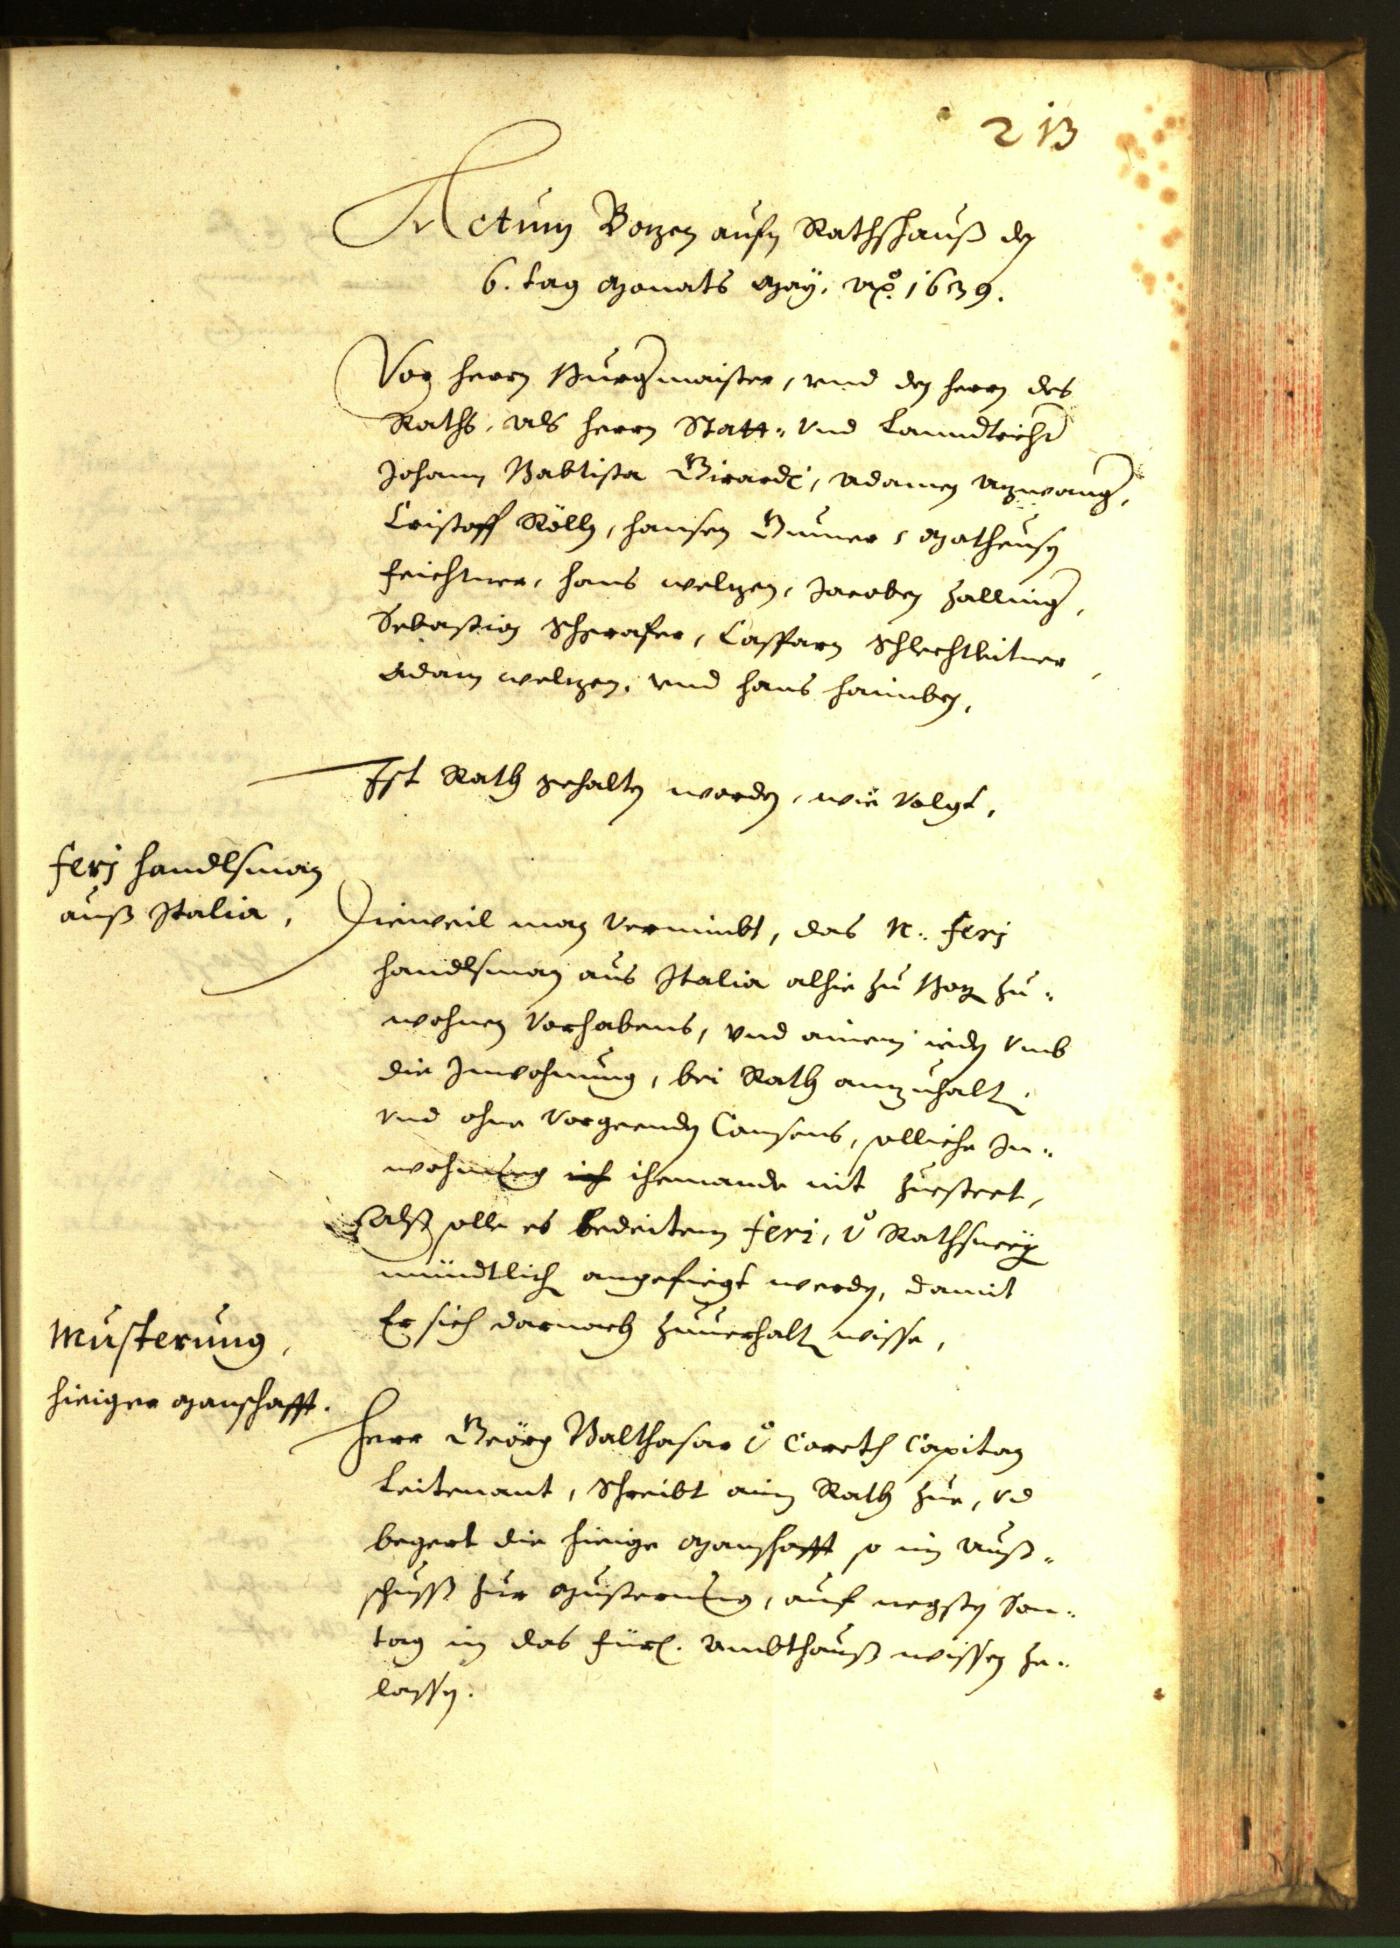 213
Actum Bozen aufm Rathshauß den
6. tag Monats May, Ao. 1639.
Von herrn Burgermaister, vnd den herrn des
Raths, als herrn Statt- vnd Lanndtrichter
Johann Babtista Girardi, Adamen Azwanger,
Cristoff Röll, hansen Gumer, Matheusen
Feichtner, hans welzen, Jacoben Zallinger,
Sebastian Schgrafer, Casparn Schlechtleitner,
Adam welzen, vnd hans haimben,
Ist Rath gehalten worden, wie Volgt,
ferj handlsman
auß Italia,
Dieweil man Vernimbt, das N. ferj
handlsman aus Italia alhie zu Bozen zu-
wohnen Vorhabens, vnd ainem ieden vmb
die Inwohnung, bei Rath anzuhalten
vnd ohne Vorgeenden Consens, solliche In-
wohnung iemande nit zuesteet,
Alß solle es bedeitem ferj, Rathswegen
mündtlich angefiegt werden, damit
Er sich darnach zuuerhalten wisse,
Musterung,
hieiger Manschafft.
Herr Geörg Balthasar v Coreth Capitan
Leitenant, Schreibt aim Rath zue, vnd
begert die hieige Manschafft so im Auß-
schuss zur Musterung, auf negsten Son-
tag in das fürl. Ambthauß wissen ze-
lassen.